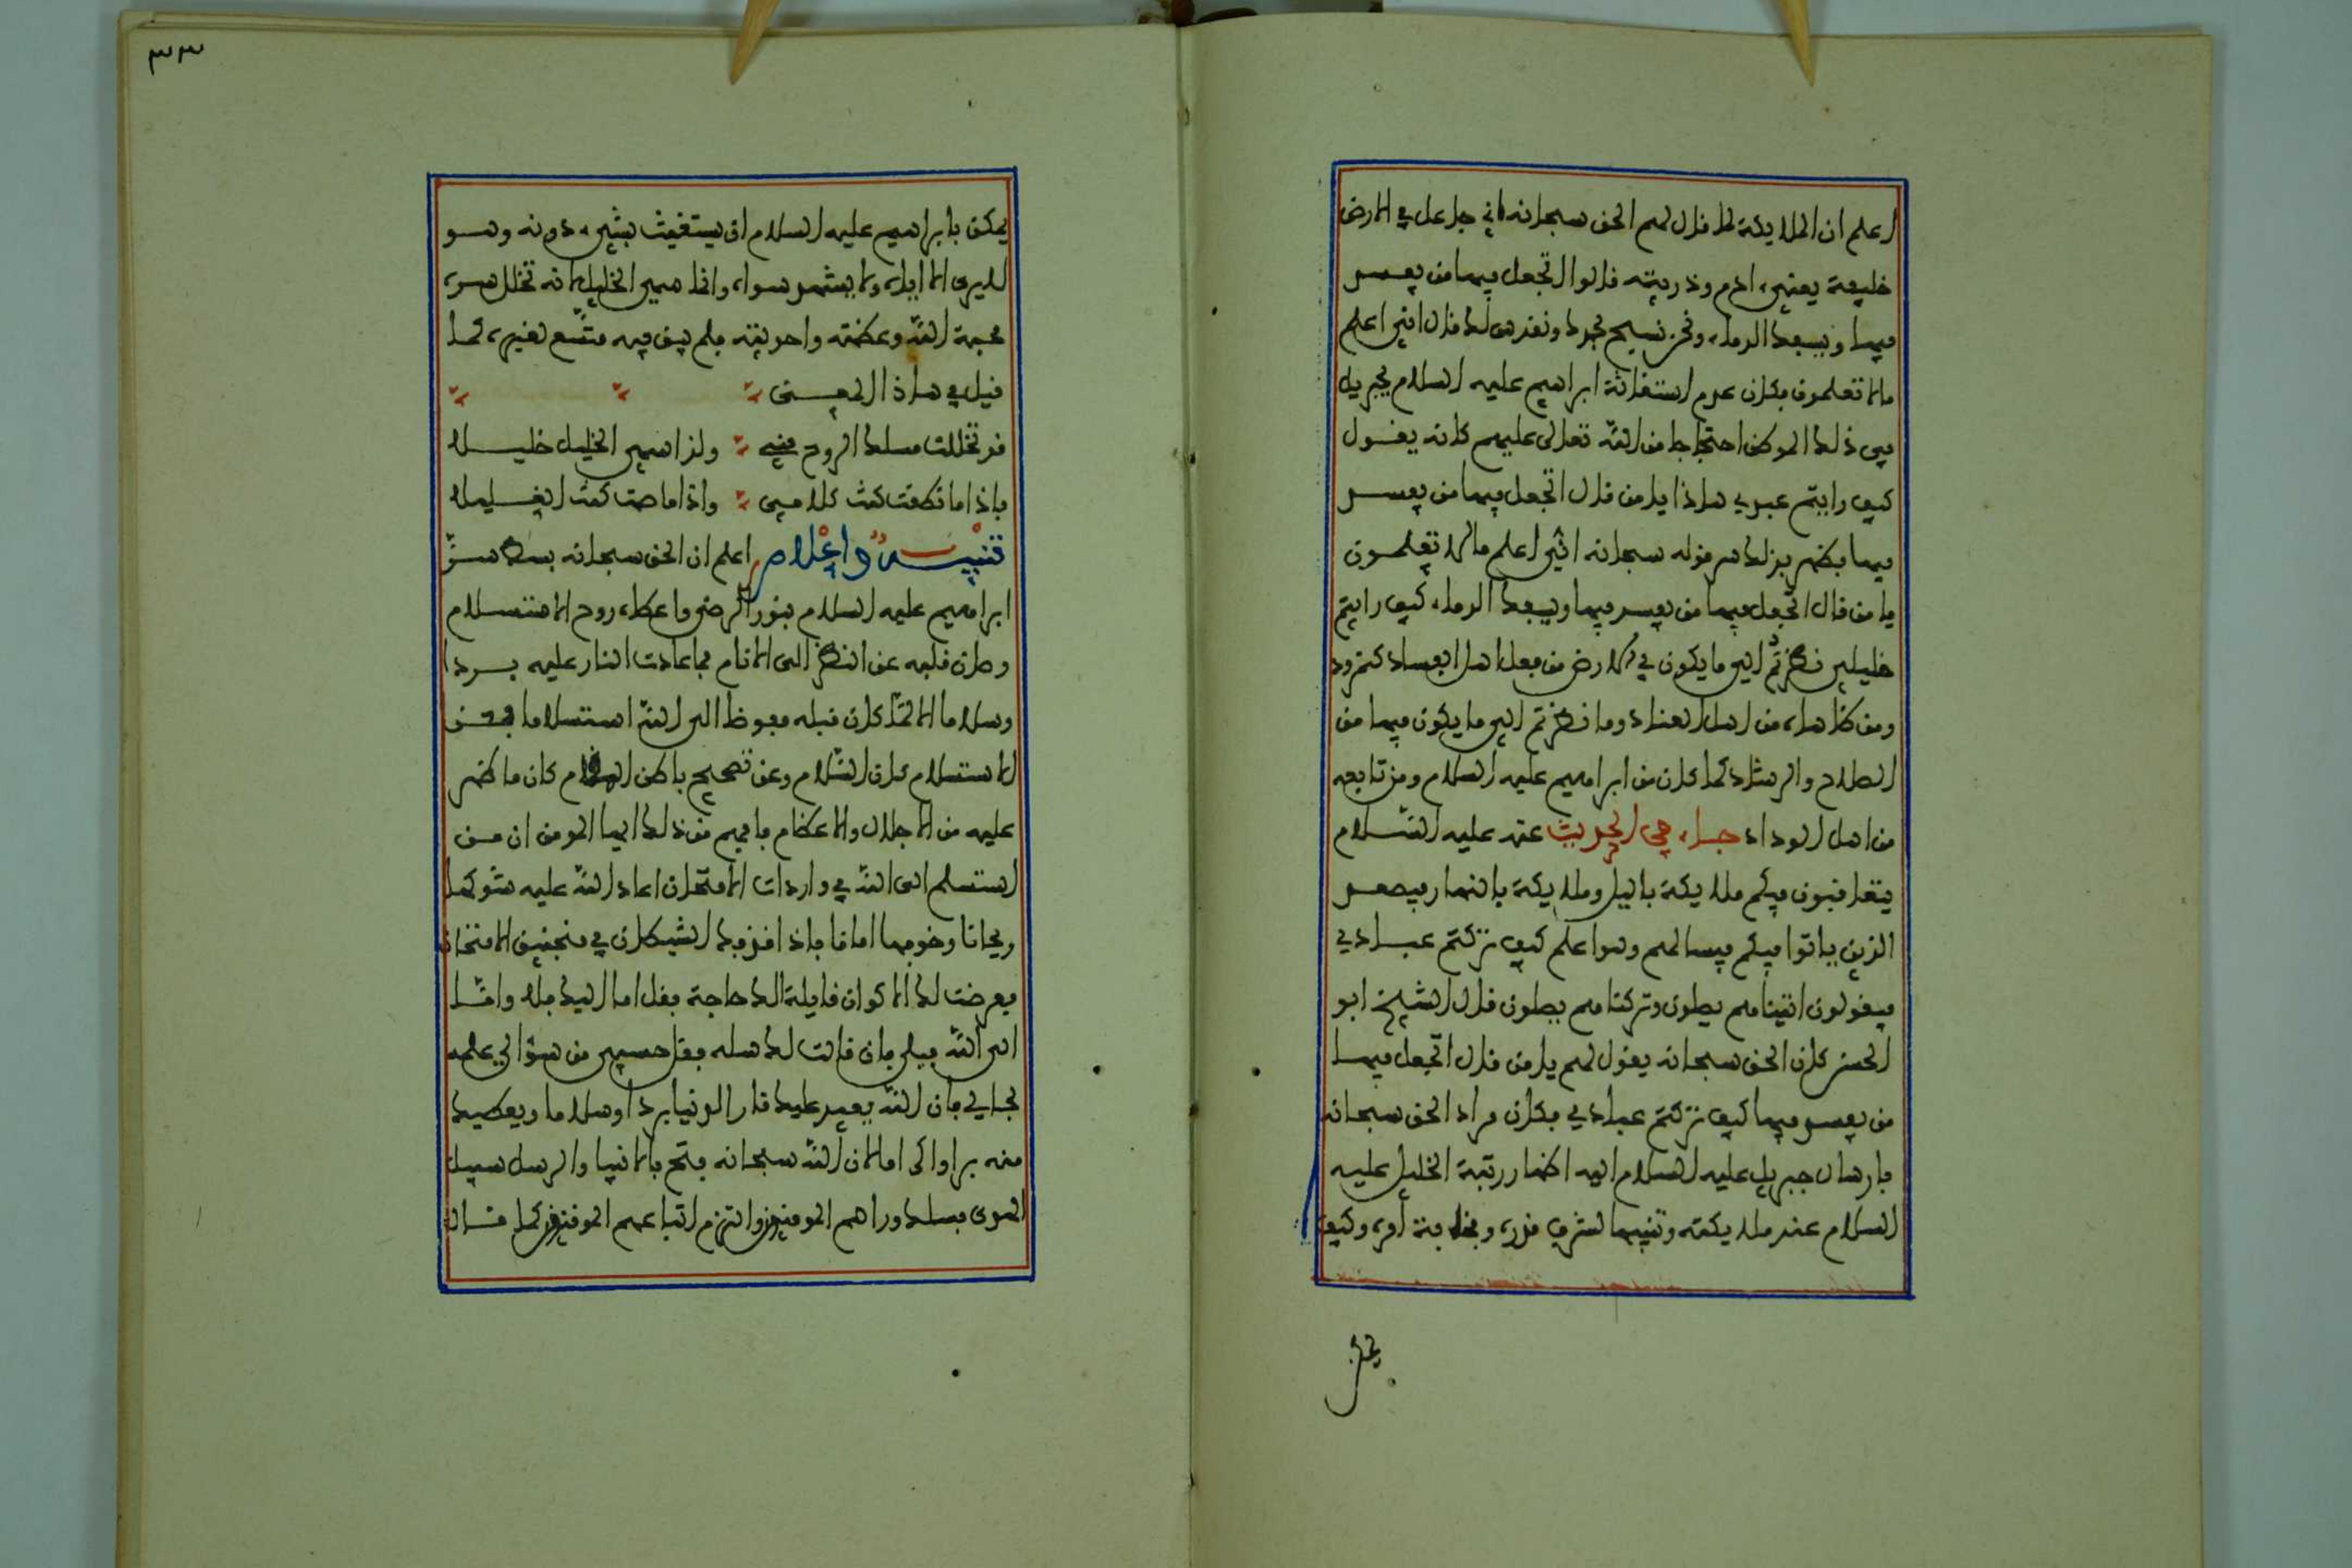 اعلم ان الملايكة لما قال لهم الحق سبحانه اني جاعل في الارض
خليفة يعني ادم وذريته قالوا اتجعل فيها من يفسد
فيها ويسفك الدماء ونحن نسبح بحمدك ونقدس لك قال اني اعلم
مالا تعلمون فكان عدم استغاثة ابراهيم عليه السلام بجبريل
في ذلك الموطن احتجاجا من الله تعالى عليهم كانه يقول
كيف رايتم عبدي هاذا يا من قال اتجعل فيها من يفسد
فيها فظهر بذلك سر قوله سبحانه اني اعلم مالا تعلمون
يا من قال اتجعل فيها من يفسد فيها ويسفك الدماء كيف رايتم
خليلي نظرتم الى ما يكون في الارض من فعل اهل الفساد كنمرود
ومن ضاهاه من اهل العناد وما نظرتم الى ما يكون فيها من
الصلاح والرشاد كما كان من ابراهيم عليه السلام ومن تابعه
من اهل الوداد جاء في الحديث عنه عليه السلام
يتعاقبون فيكم ملايكة باليل وملايكة بالنهار فيصعد
الذين باتوا فيكم فيسالهم وهوا علم كيف تركتم عبادي
فيقولون اتيناهم يصلون وتركناهم يصلون قال الشيخ ابو
الحسن كان الحق سبحانه يقول لهم يا من قال اتجعل فيها
من يفسد فيها كيف تركتم عبادي فكان مراد الحق سبحانه
بارسال جبريل عليه السلام اليه اظهار رتبة الخليل عليه
السلام عند ملايكته وتنبيها لشرف قدره وفخامة امره وكيف
يمكن
يمكن بابراهيم عليه السلام ان يستغيث بشيء دونه وهو
لا يرى الا اياه ولا يشهد سواه وانما سمي الخليل لانه تخلل سره
محبة الله وعظمته واحديته فلم يبق فيه متسع لغيره كما
قيل في هاذا المعنى
قد تخللت مسلك الروح مني ولذا سمي الخليل خليلا
فاذا ما نطقت كنت كلامي واذا ما صمت كنت الغليلا
تنبيه واعلام اعلم ان الحق سبحانه بسط سر
ابراهيم عليه السلام بنور الرضى واعطاه روح الاستسلام
وصان قلبه عن النظر الى الانام فما عادت النار عليه بردا
وسلاما الا لما كان قلبه مفوضا الى الله استسلاما فعن
الاستسلام كان السلام وعن تصحيح باطن المقام كان ما ظهر
عليه من الاجلال والاعظام فافهم من ذلك ايها المومن ان من
استسلم الى الله في واردات الامتحان اعاد الله عليه شوكها
ريحانا وخوفها امانا فاذا قذف بك الشيطان في منجنيق الامتحان
فعرضت لك الاكوان قايلة الك حاجة فقل اما اليك فلا واما
الى الله فبلى فان قالت لك سله فقل حسبي من سؤالي علمه
بحالي فان الله يعيد عليك نار الدنيا بردا وسلاما ويعطيك
منه براواكراما لان الله سبحانه فتح بالانبيا والرسل سبيل
الهدى فسلك وراهم المومنون والتزم اتباعهم الموقنون كما قال
٣٣